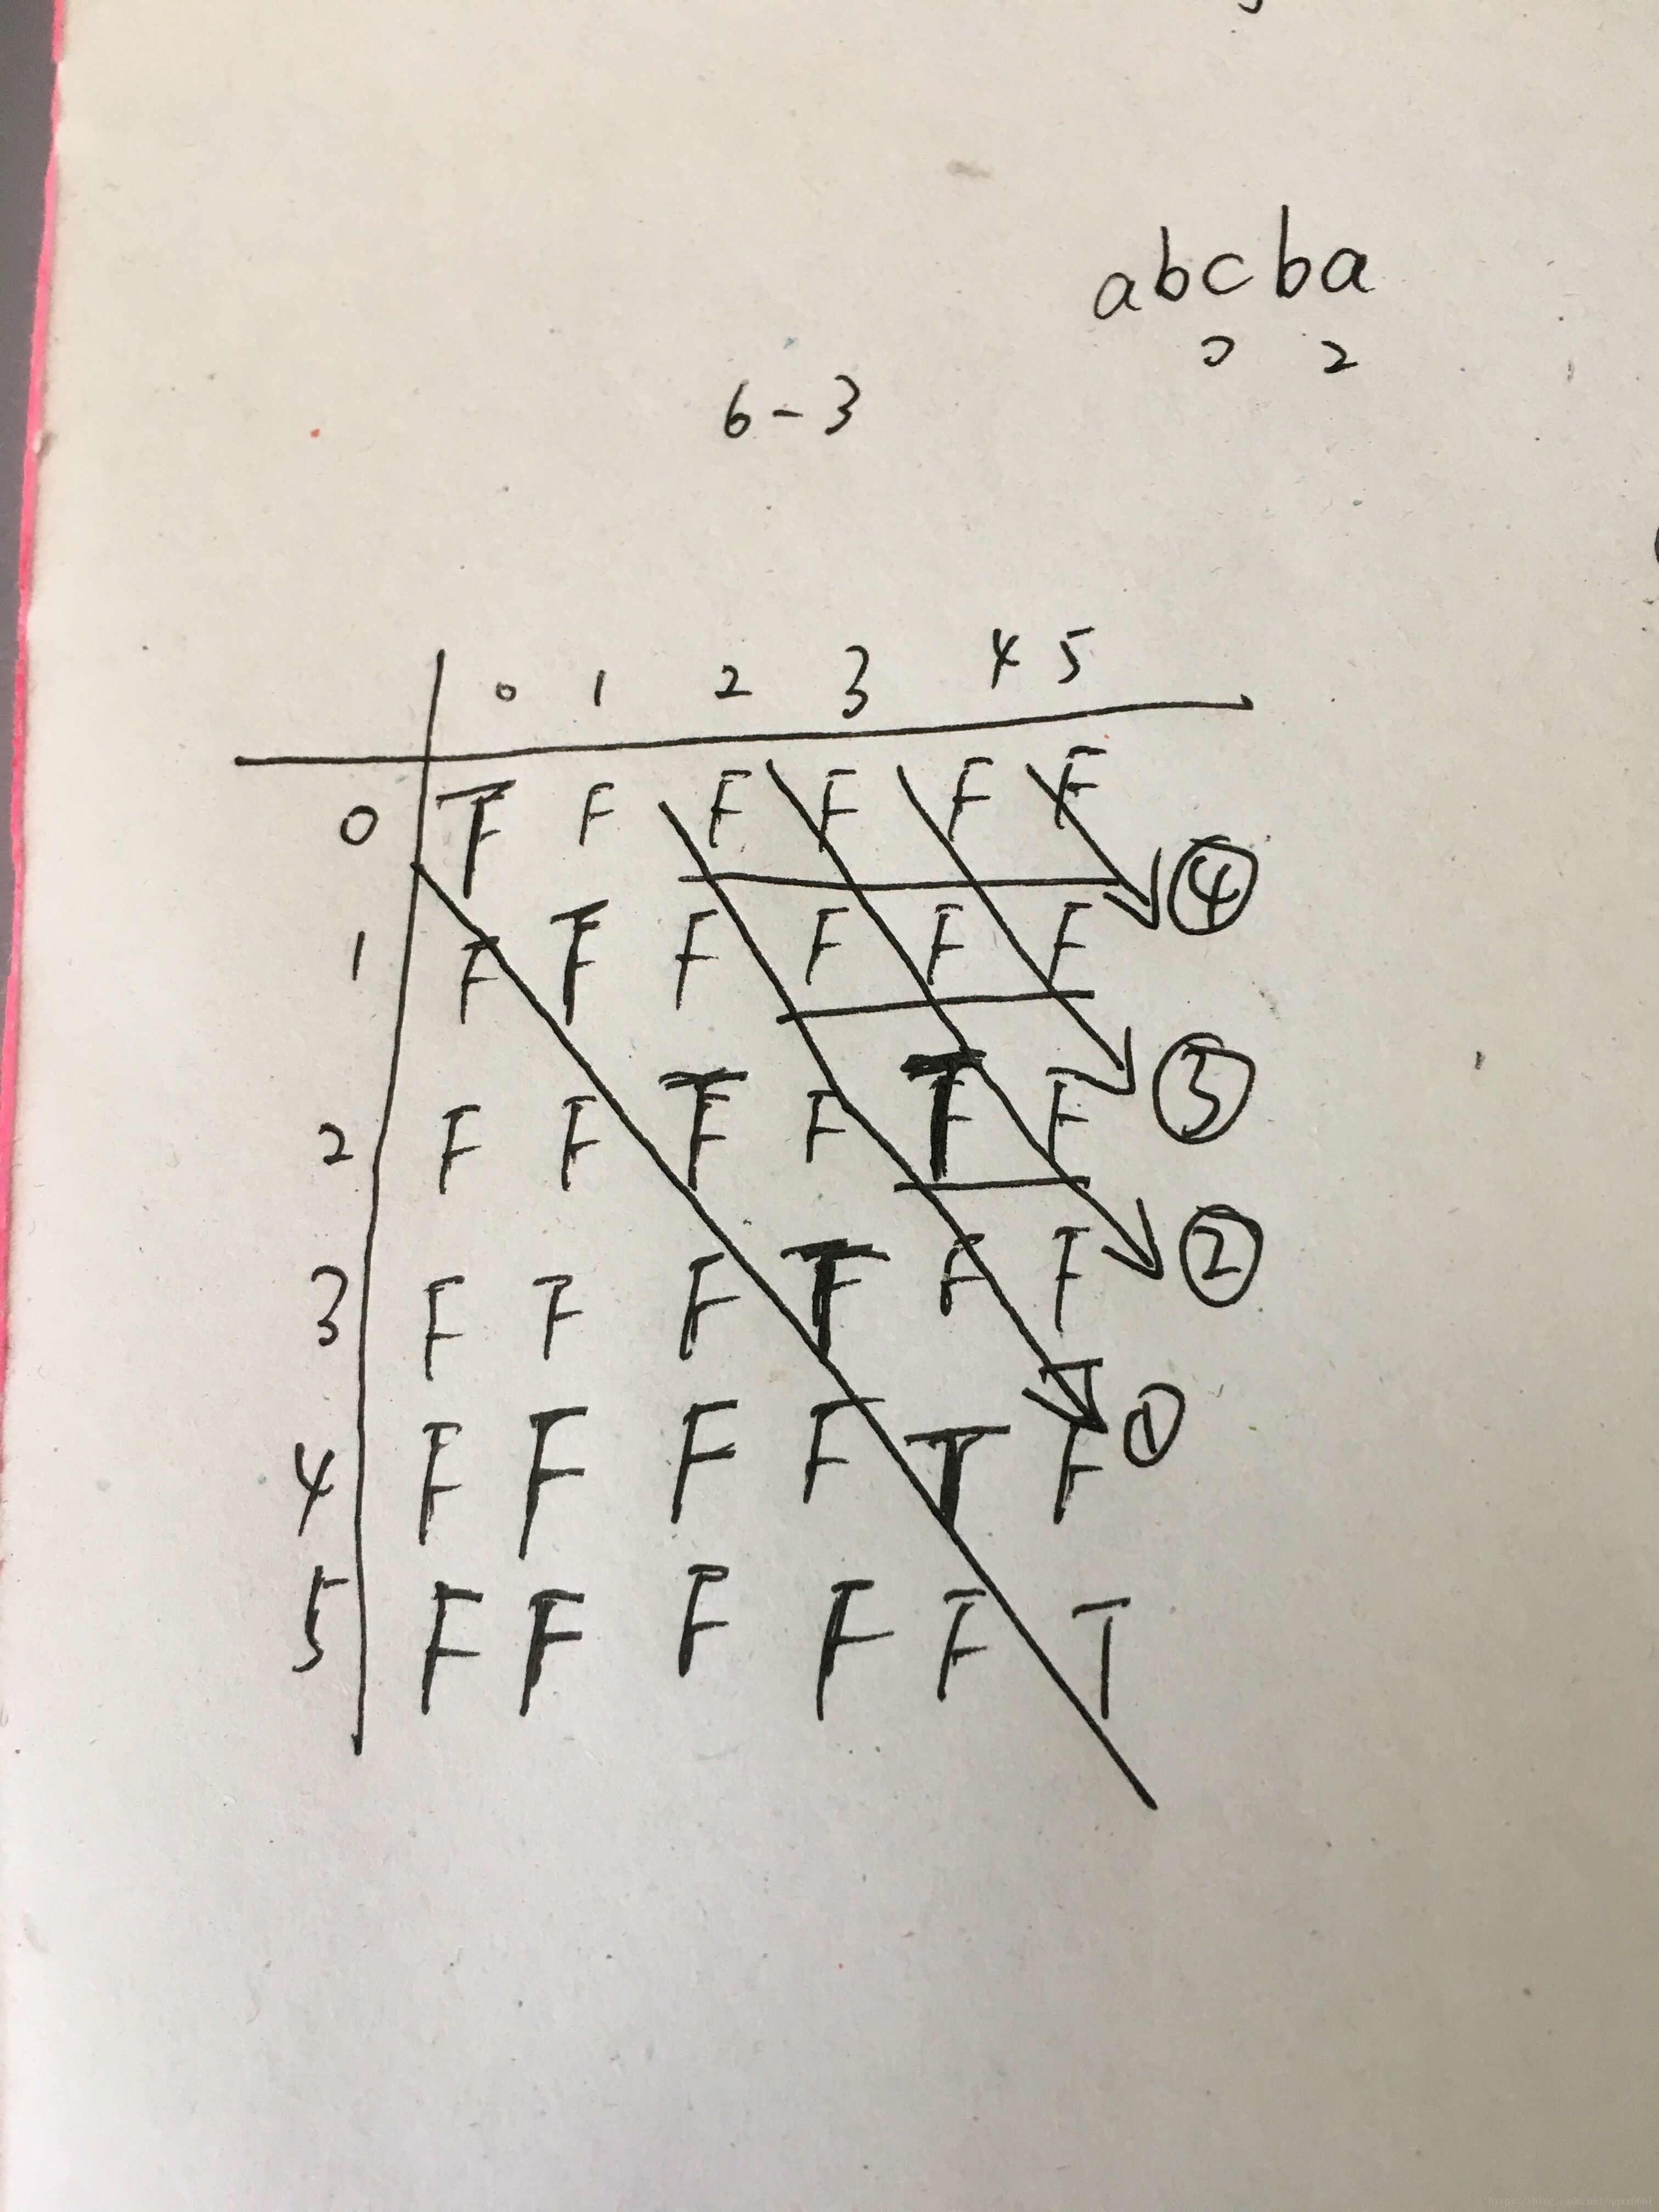 abcba
0 2
6-3
0 1 2 3 4 5
0 T F F F F F ④
1 F T F F F F
2 F F T F T F ③
3 F F F T F F ②
4 F F F F T F ①
5 F F F F F T